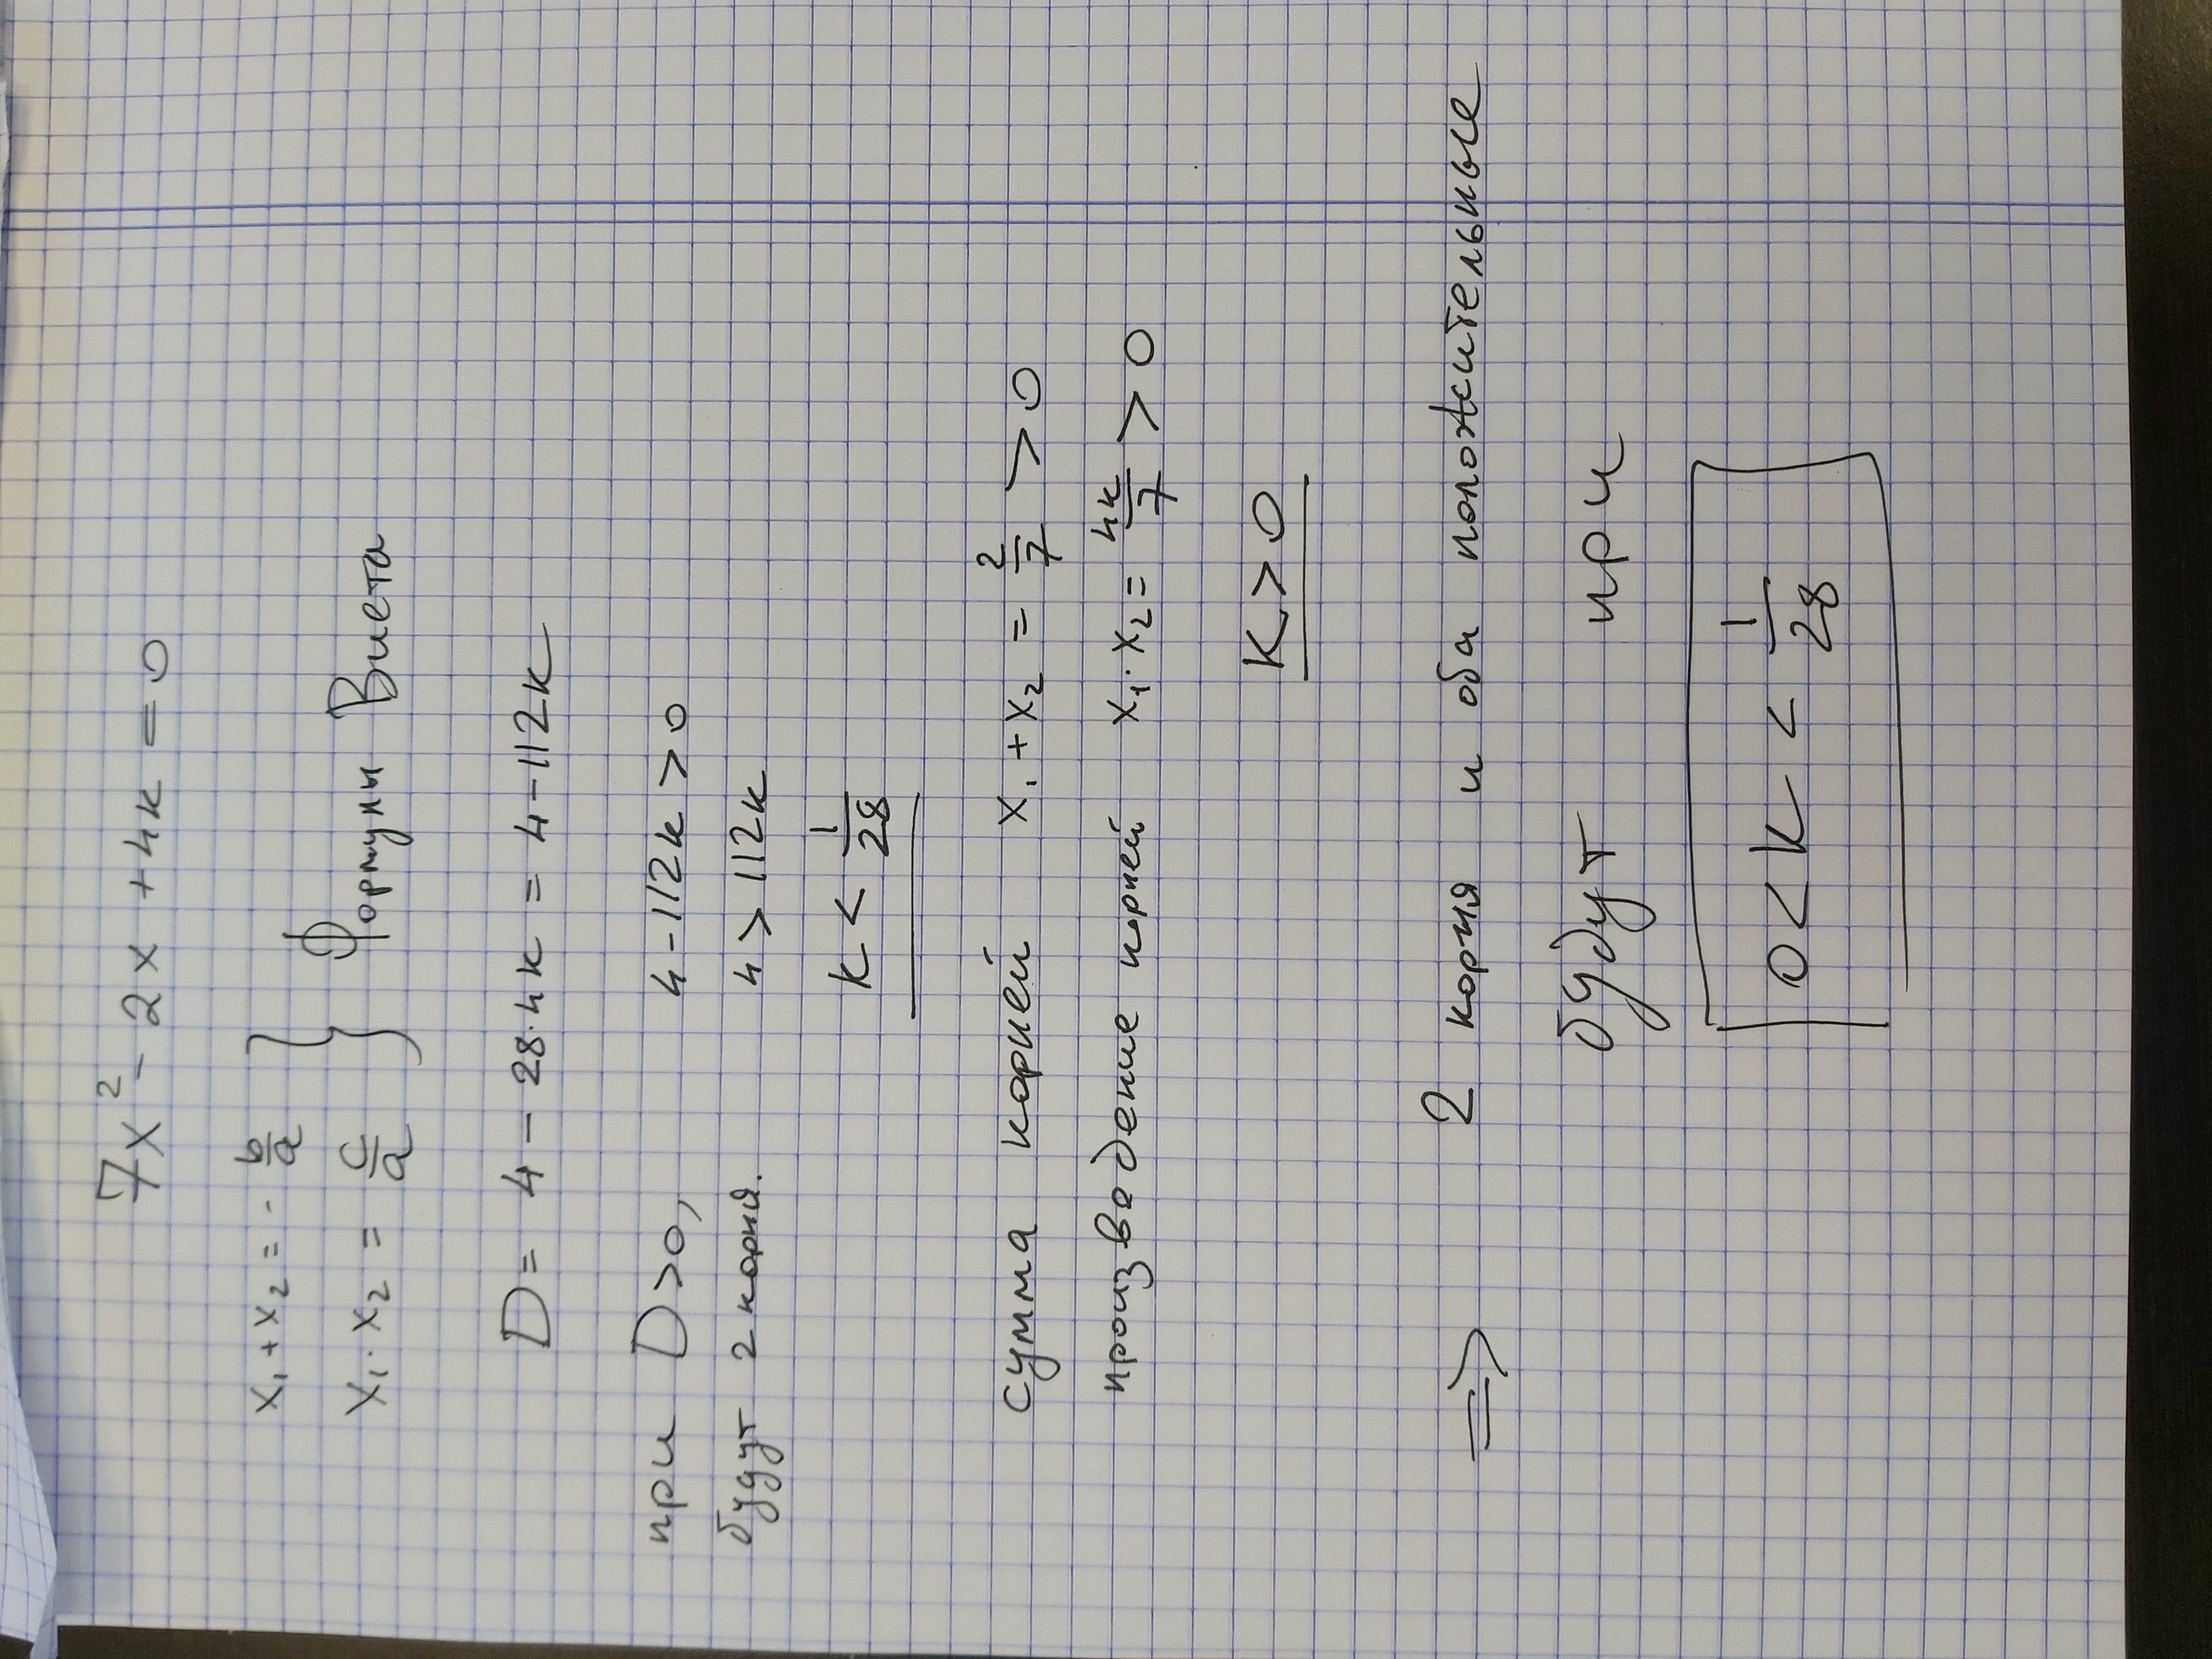 7x² - 2x + 4k = 0
x₁ + x₂ = - b/a
x₁ · x₂ = c/a } Формулы Виета
D = 4 - 28·4k = 4 - 112k
при D > 0, 4 - 112k > 0
будут 2 корня. 4 > 112k
k < 1/28
сумма корней x₁ + x₂ = 2/7 > 0
произведение корней x₁ · x₂ = 4k/7 > 0
k > 0
=> 2 корня и оба положительные
будут при
0 < k < 1/28